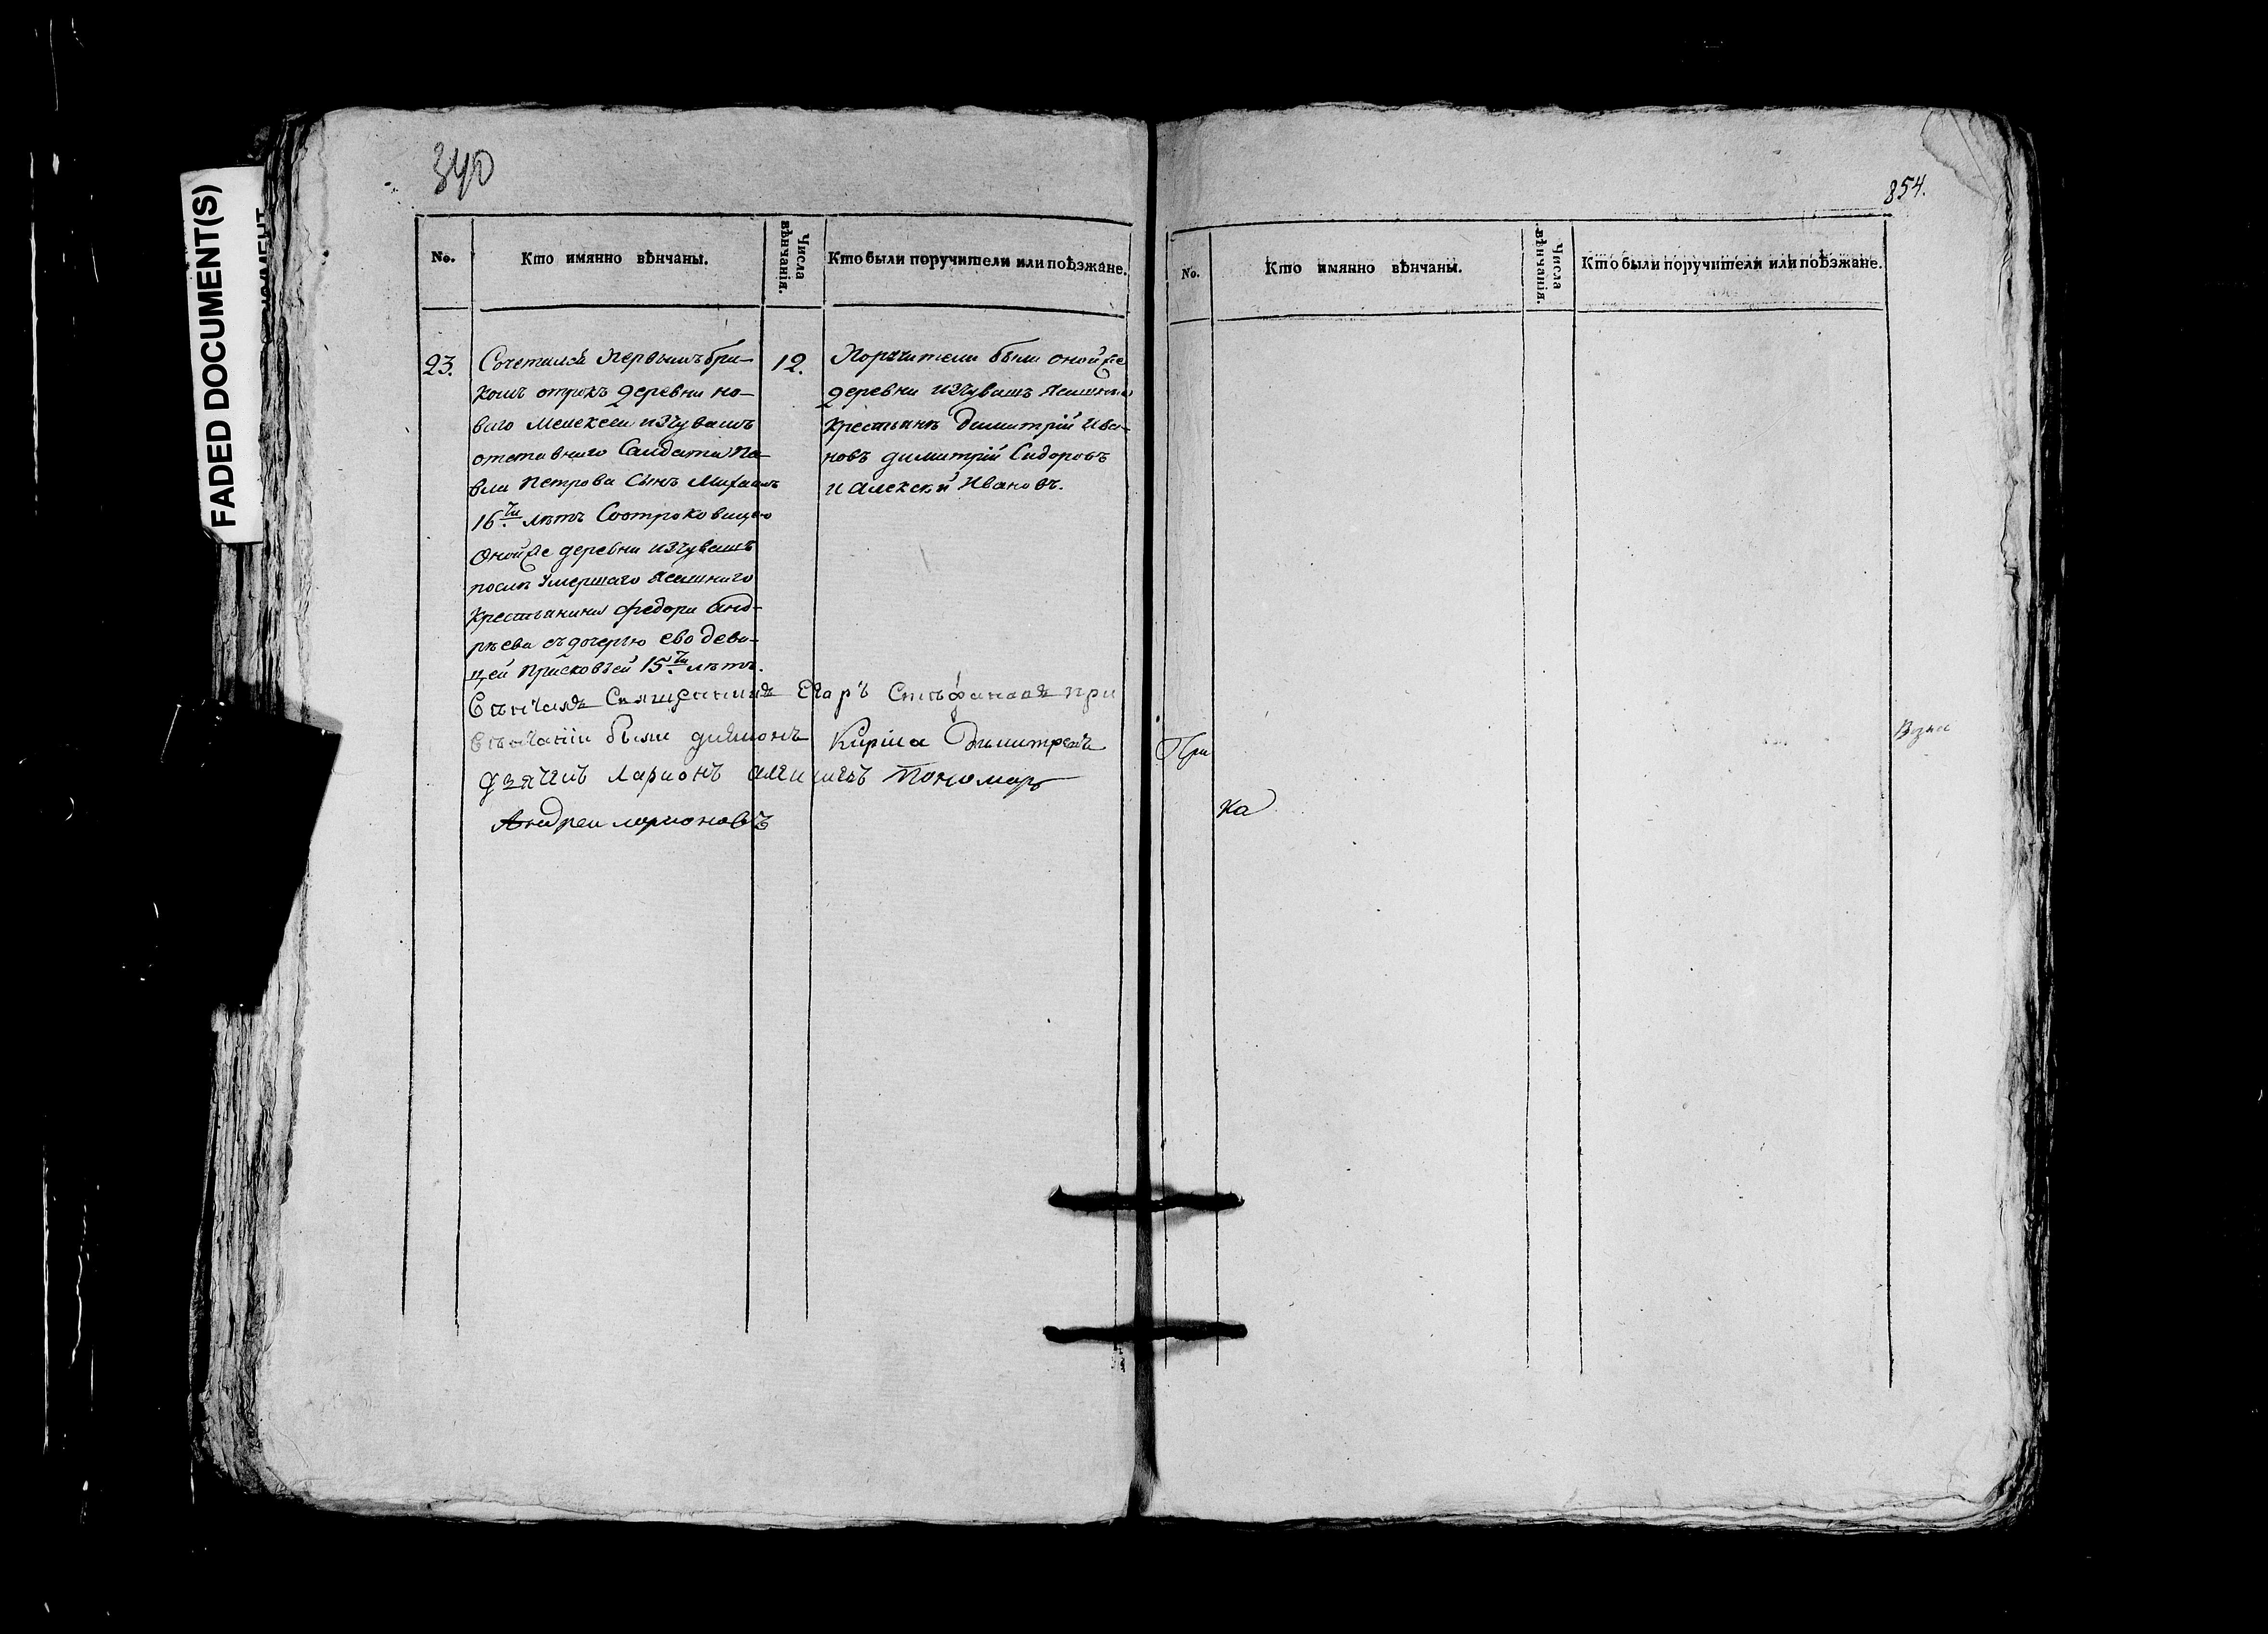 FADED DOCUMENT(S)
340
No.
Кто имянно вѣнчаны.
Числа вѣнчанія.
Кто были поручители или поѣзжане.
23.
Сочетался первымъ бра-
комъ отрокъ деревни но-
ваго Мелекеса изчувашъ
отставнаго Салдата Па-
вла Петрова Сынъ Михаилъ
16ти лѣтъ Соотроковицею
Онойже деревни изчувашъ
послѣ Умершаго Ясашнаго
Крестьянина Федора Анд-
рѣева съ дочерью ево деви-
цей Прасковьей 15ти лѣтъ.
12.
Поручители были онойже
деревни изчувашъ Ясашныя
крестьянѣ Димитрій Ива-
новъ димитрій Сидоровъ
и Алексѣй Ивановъ.
Вѣнчалъ Священникъ Егаръ Стефановъ при
вѣнчаніи были дияконъ Кирила Димитреевъ
дьячикъ Ларионъ пономарь
Андреи ларионовъ
854.
No.
Кто имянно вѣнчаны.
Числа вѣнчанія.
Кто были поручители или поѣзжане.
При
ка